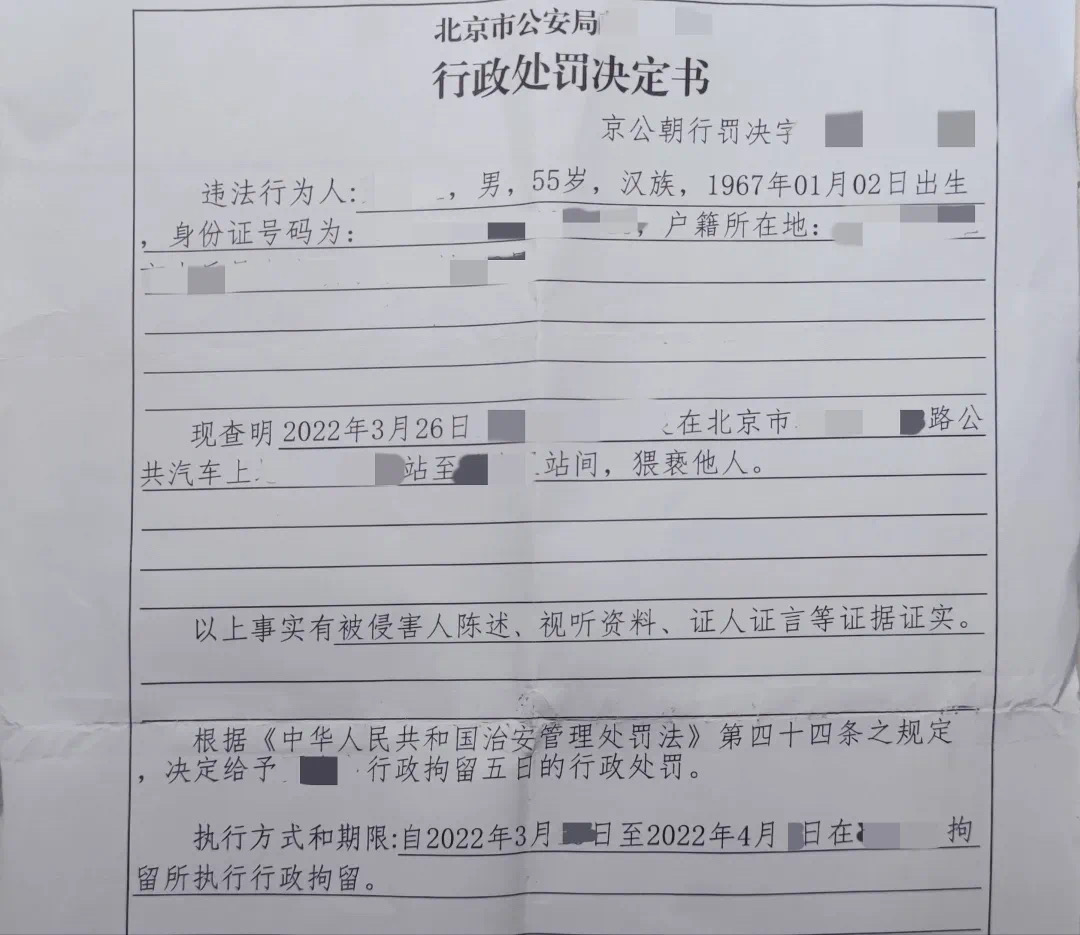 北京市公安局
行政处罚决定书
京公朝行罚决字
违法行为人: ，男，55岁，汉族，1967年01月02日出生
，身份证号码为： ，户籍所在地：
现查明2022年3月26日 在北京市 路公
共汽车上 站至 站间，猥亵他人。
以上事实有被侵害人陈述、视听资料、证人证言等证据证实。
根据《中华人民共和国治安管理处罚法》第四十四条之规定
，决定给予 行政拘留五日的行政处罚。
执行方式和期限:自2022年3月 日至2022年4月 日在 拘
留所执行行政拘留。